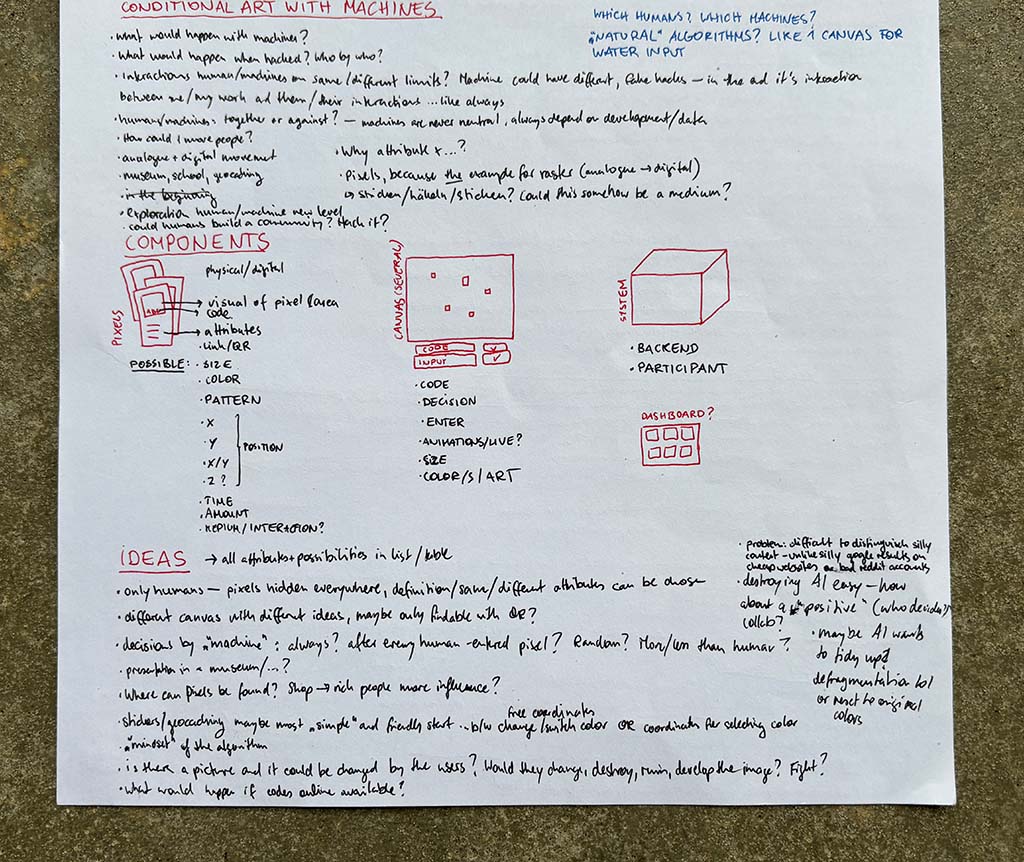 CONDITIONAL ART WITH MACHINES
WHICH HUMANS? WHICH MACHINES?
"NATURAL" ALGORITHMS? LIKE 1 CANVAS FOR
WATER INPUT
· What would happen with machines?
· What would happen when hacked? Who by who?
· Interactions human/machines on same/different limits? Machine could have different, fake hacks – in the end it's interaction
between me/my work and them/their interactions ... like always
· human/machines: together or against? – machines are never neutral, always depend on development/data
· How could I more people?
· analogue + digital movement
· museum, school, geocaching
· in the beginning
· exploration human/machine new level
· could humans build a community? Hack it?
· Why attribute x...?
· Pixels, because the example for raster (analogue → digital)
↳ stricken/häkeln/sticken? Could this somehow be a medium?
COMPONENTS
PIXELS
physical/digital
→ visual of pixel/area
→ code
→ attributes
· Link/QR
POSSIBLE: · SIZE
· COLOR
· PATTERN
· X
· Y
· X/Y
· Z?
POSITION
· TIME
· AMOUNT
· MEDIUM/INTERACTION?
CANVAS (SEVERAL)
CODE
INPUT
· CODE
· DECISION
· ENTER
· ANIMATIONS/LIVE?
· SIZE
· COLOR/S/ART
SYSTEM
· BACKEND
· PARTICIPANT
DASHBOARD?
IDEAS → all attributes + possibilities in list/table
· only humans – pixels hidden everywhere, definition/same/different attributes can be chosen
· different canvas with different ideas, maybe only findable with QR?
· decisions by "machine": always? after every human-entered pixel? Random? More/less than human?
· presentation in a museum/...?
· Where can pixels be found? Shop → rich people more influence?
· stickers/geocaching maybe most "simple" and friendly start
free coordinates
– b/w change/switch color OR coordinates for selecting color
· "mindset" of the algorithm
· is there a picture and it could be changed by the users? Would they change, destroy, ruin, develop the image? Fight?
· What would happen if codes online available?
· problem: difficult to distinguish silly
content – unlike silly google results on
cheap websites or bad reddit accounts
· destroying AI easy – how
about a "positive" (who decides?)
collab?
· maybe AI wants
to tidy up?
defragmentation lol
or reset to original
colors